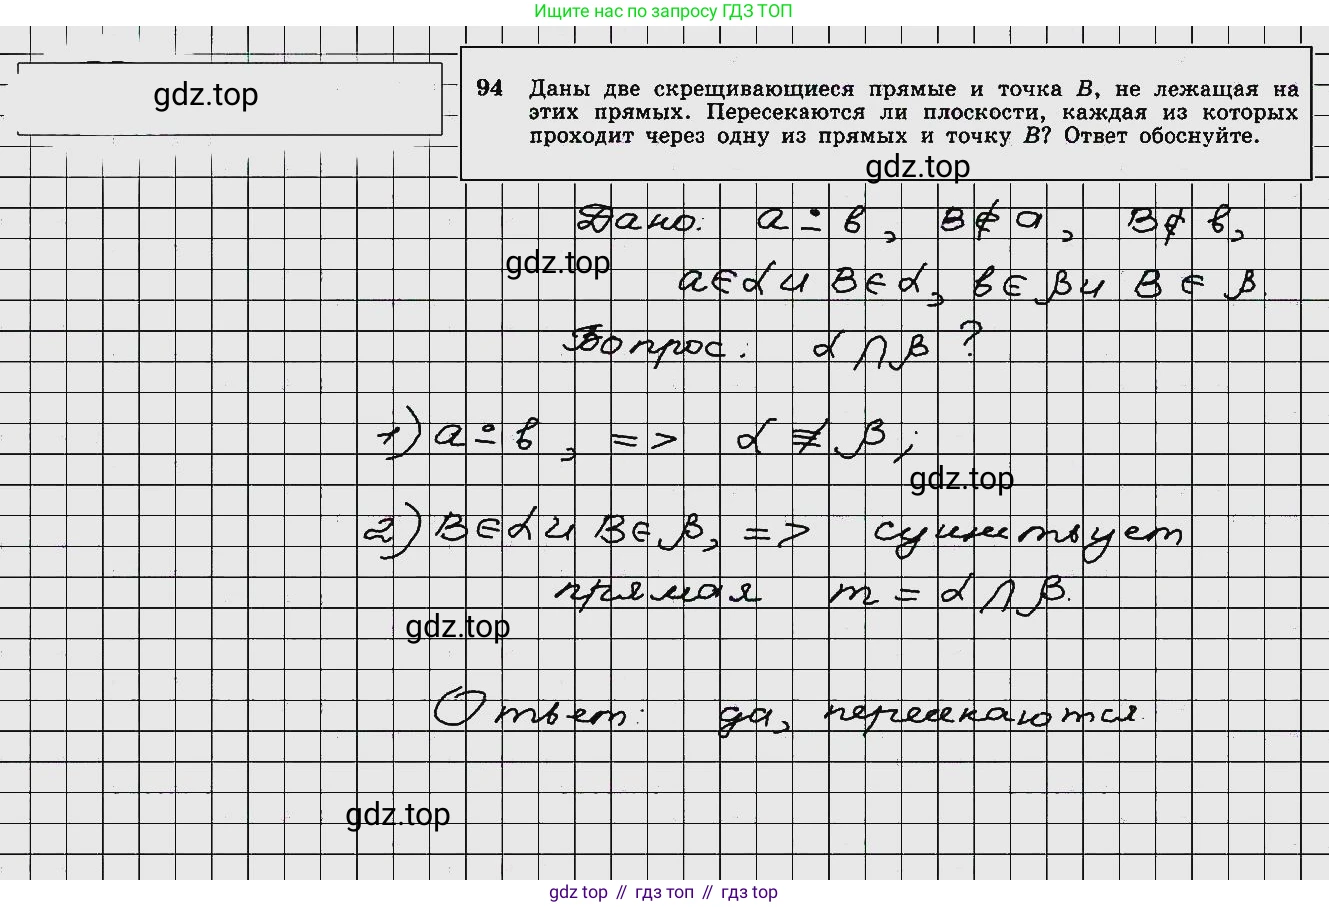 Ищите нас по запросу ГДЗ ТОП
gdz.top
94 Даны две скрещивающиеся прямые и точка B, не лежащая на
этих прямых. Пересекаются ли плоскости, каждая из которых
проходит через одну из прямых и точку B? Ответ обоснуйте.
gdz.top
Дано: a ∸ b, B ∉ a, B ∉ b,
gdz.top
a ∈ α и B ∈ α, b ∈ β и B ∈ β.
Вопрос: α ∩ β ?
1) a ∸ b, => α ≢ β;
gdz.top
2) B ∈ α и B ∈ β, => существует
прямая m = α ∩ β.
gdz.top
Ответ: да, пересекаются.
gdz.top
gdz top // гдз топ // gdz top